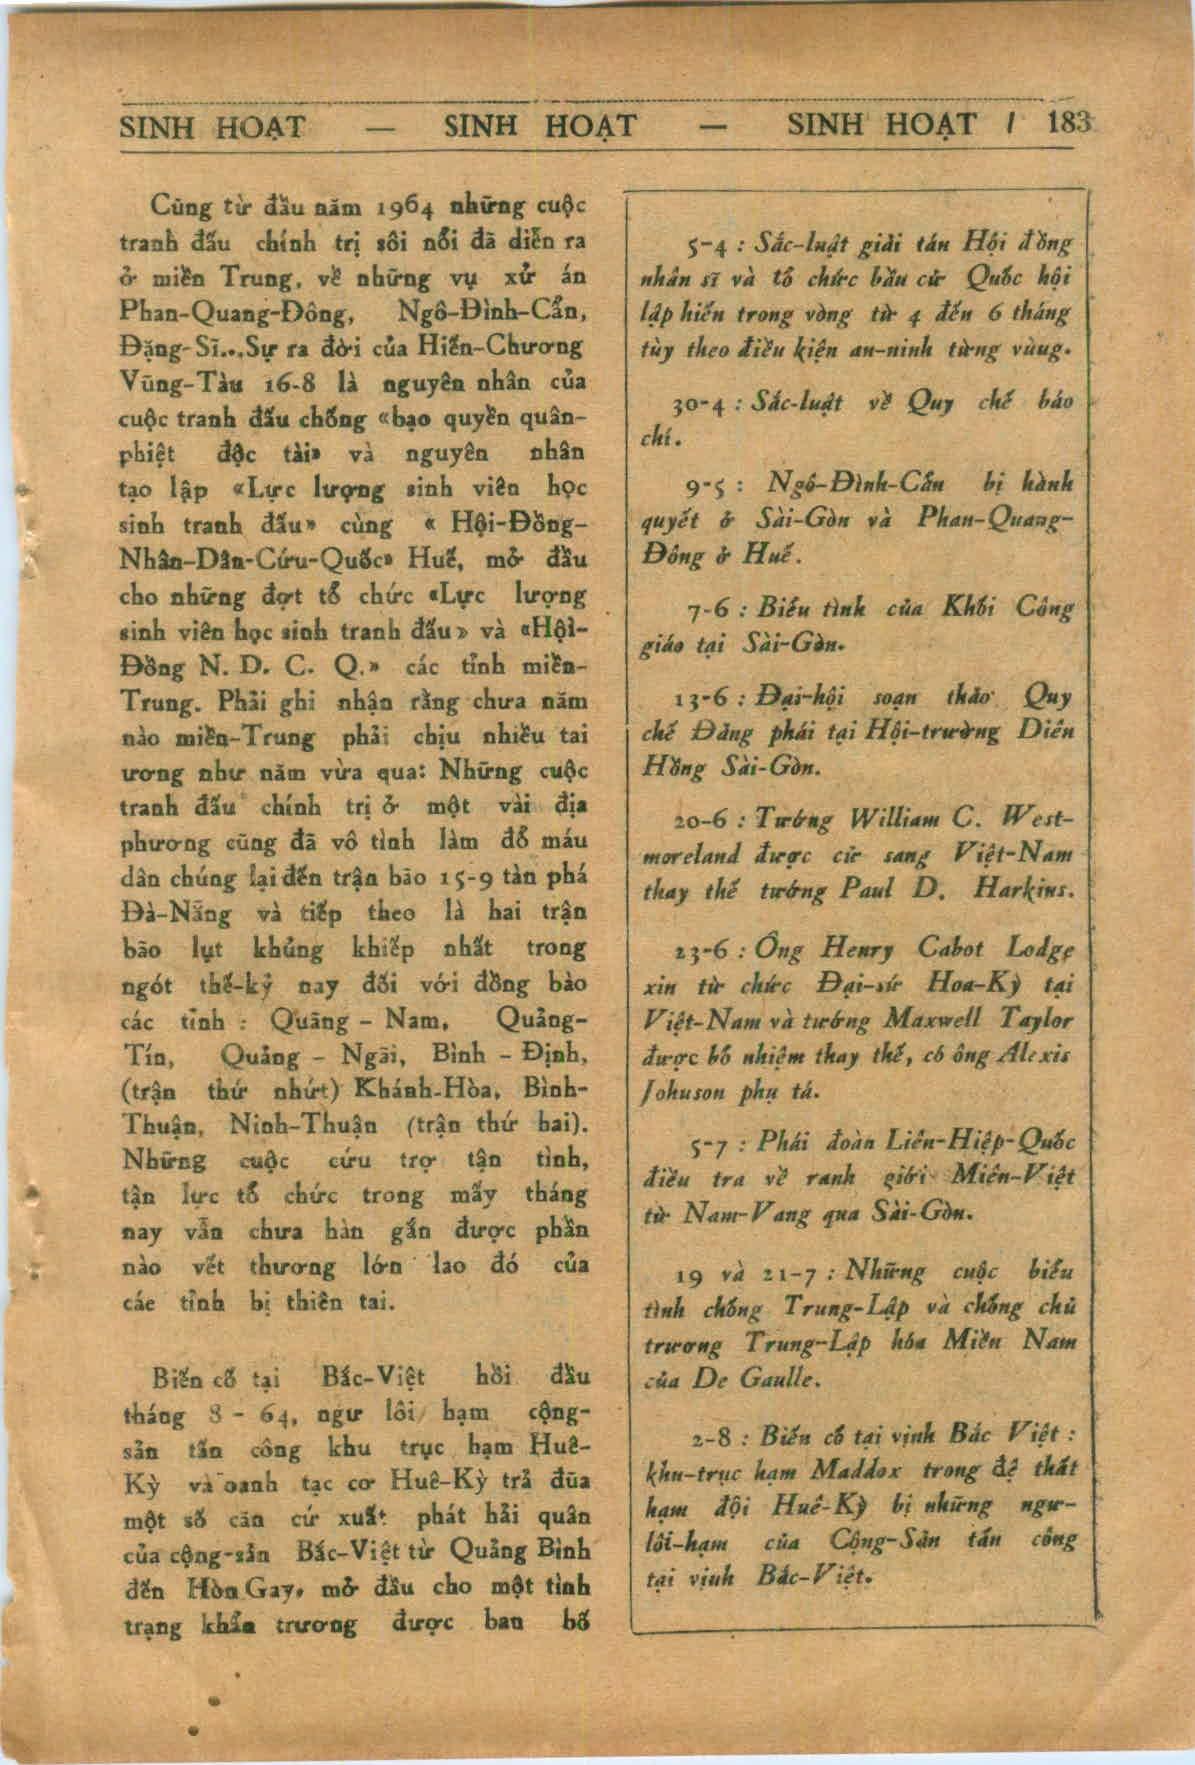 SINH HOẠT — SINH HOẠT — SINH HOẠT / 183
Cũng từ đầu năm 1964 những cuộc
tranh đấu chính trị sôi nổi đã diễn ra
ở miền Trung, về những vụ xử án
Phan-Quang-Đông, Ngô-Đình-Cẩn,
Đặng-Sĩ...Sự ra đời của Hiến-Chương
Vũng-Tàu 16-8 là nguyên nhân của
cuộc tranh đấu chống «bạo quyền quân-
phiệt độc tài» và nguyên nhân
tạo lập «Lực lượng sinh viên học
sinh tranh đấu» cùng « Hội-Đồng-
Nhân-Dân-Cứu-Quốc» Huế, mở đầu
cho những đợt tổ chức «Lực lượng
sinh viên học sinh tranh đấu» và «Hội-
Đồng N. D. C. Q.» các tỉnh miền-
Trung. Phải ghi nhận rằng chưa năm
nào miền-Trung phải chịu nhiều tai
ương như năm vừa qua: Những cuộc
tranh đấu chính trị ở một vài địa
phương cũng đã vô tình làm đổ máu
dân chúng lại đến trận bão 15-9 tàn phá
Đà-Nẵng và tiếp theo là hai trận
bão lụt khủng khiếp nhất trong
ngót thế-kỷ nay đối với đồng bào
các tỉnh : Quảng - Nam, Quảng-
Tín, Quảng - Ngãi, Bình - Định,
(trận thứ nhứt) Khánh-Hòa, Bình-
Thuận, Ninh-Thuận (trận thứ hai).
Những cuộc cứu trợ tận tình,
tận lực tổ chức trong mấy tháng
nay vẫn chưa hàn gắn được phần
nào vết thương lớn lao đó của
các tỉnh bị thiên tai.
Biến cố tại Bắc-Việt hồi đầu
tháng 8 - 64, ngư lôi hạm cộng-
sản tấn công khu trục hạm Huê-
Kỳ và oanh tạc cơ Huê-Kỳ trả đũa
một số căn cứ xuất phát hải quân
của cộng-sản Bắc-Việt từ Quảng Bình
đến Hòn Gay, mở đầu cho một tình
trạng khẩn trương được ban bố
5-4 : Sắc-luật giải tán Hội đồng
nhân sĩ và tổ chức bầu cử Quốc hội
lập hiến trong vòng từ 4 đến 6 tháng
tùy theo điều kiện an-ninh từng vùug.
30-4 : Sắc-luật về Quy chế báo
chí.
9-5 : Ngô-Đình-Cẩn bị hành
quyết ở Sài-Gòn và Phan-Quang-
Đông ở Huế.
7-6 : Biểu tình của Khối Công
giáo tại Sài-Gòn.
13-6 : Đại-hội soạn thảo Quy
chế Đảng phái tại Hội-trường Diên
Hồng Sài-Gòn.
20-6 : Tướng William C. West-
moreland được cử sang Việt-Nam
thay thế tướng Paul D. Harkins.
23-6 : Ông Henry Cabot Lodge
xin từ chức Đại-sứ Hoa-Kỳ tại
Việt-Nam và tướng Maxwell Taylor
được bổ nhiệm thay thế, có ông Alexis
Johuson phụ tá.
5-7 : Phái đoàn Liên-Hiệp-Quốc
điều tra về ranh giới Miên-Việt
từ Nam-Vang qua Sài-Gòn.
19 và 21-7 : Những cuộc biểu
tình chống Trung-Lập và chống chủ
trương Trung-Lập hóa Miền Nam
của De Gaulle.
2-8 : Biến cố tại vịnh Bắc Việt :
khu-trục hạm Maddox trong đệ thất
hạm đội Huê-Kỳ bị những ngư-
lôi-hạm của Cộng-Sản tấn công
tại vịnh Bắc-Việt.